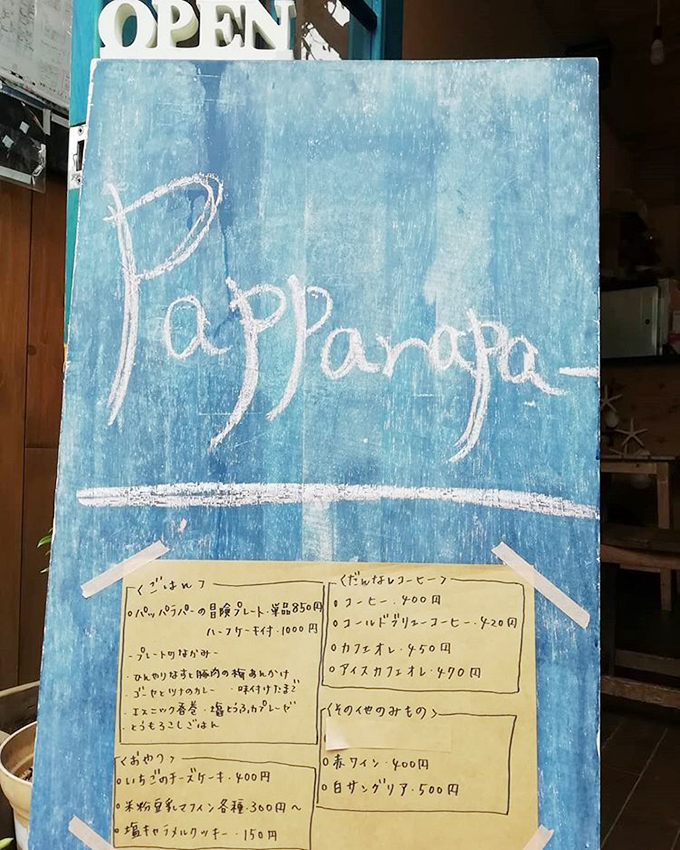 OPEN
Papparapa-
〈ごはん〉
○パッパラパーの冒険プレート・単品850円
ハーフケーキ付・1000円
-プレートのなかみ-
・ひんやりなすと豚肉の梅あんかけ
・ゴーヤとツナのカレー ・味付けたまご
・エスニック春巻 ・塩とうふカプレーゼ
・とうもろこしごはん
〈おやつ〉
○いちごのチーズケーキ・400円
○米粉豆乳マフィン各種・300円〜
○塩キャラメルクッキー・150円
〈だんなのコーヒー〉
○コーヒー・400円
○コールドブリューコーヒー・420円
○カフェオレ・450円
○アイスカフェオレ・470円
〈その他のみもの〉
○赤ワイン・400円
○白サングリア・500円